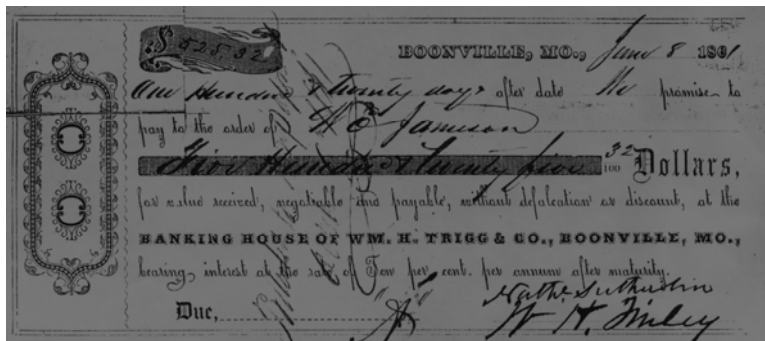 $ 525.32 BOONVILLE, MO., June 8 1861
One Hundred & twenty days after date We promise to
pay to the order of W C Jameson
Five Hundred & twenty five 32/100 Dollars,
for value received, negotiable and payable, without defalcation or discount, at the
BANKING HOUSE OF WM. H. TRIGG & CO., BOONVILLE, MO.,
bearing interest at the rate of Ten per cent. per annum after maturity.
Nath. Sutherlin
Due, W H. Finley